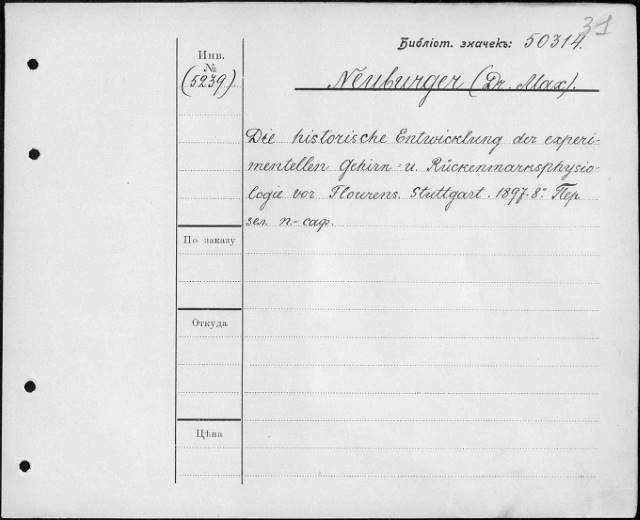 31
Библіот. значекъ: 50314.
Инв.
№
(5239.)
Neuburger (Dr. Max).
Die historische Entwicklung der experi-
mentellen Gehirn- u. Rückenmarksphysio-
logie vor Flourens. Stuttgart. 1897. 8.° Пер
зел. п-саф.
По заказу
Откуда
Цѣна